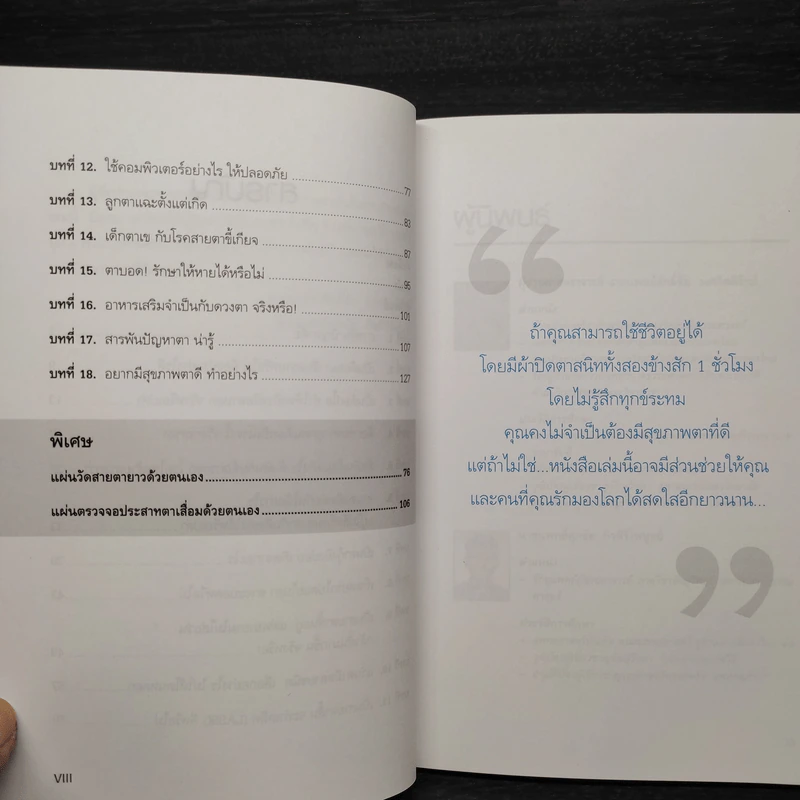 บทที่ 12. ใช้คอมพิวเตอร์อย่างไร ให้ปลอดภัย 77
บทที่ 13. ลูกตาแฉะตั้งแต่เกิด 83
บทที่ 14. เด็กตาเข กับโรคสายตาขี้เกียจ 87
บทที่ 15. ตาบอด! รักษาให้หายได้หรือไม่ 95
บทที่ 16. อาหารเสริมจำเป็นกับดวงตา จริงหรือ! 101
บทที่ 17. สารพันปัญหาตา น่ารู้ 107
บทที่ 18. อยากมีสุขภาพตาดี ทำอย่างไร 127
พิเศษ
แผ่นวัดสายตายาวด้วยตนเอง 76
แผ่นตรวจจอประสาทตาเสื่อมด้วยตนเอง 106
VIII
“
ถ้าคุณสามารถใช้ชีวิตอยู่ได้
โดยมีผ้าปิดตาสนิททั้งสองข้างสัก 1 ชั่วโมง
โดยไม่รู้สึกทุกข์ระทม
คุณคงไม่จำเป็นต้องมีสุขภาพตาที่ดี
แต่ถ้าไม่ใช่...หนังสือเล่มนี้อาจมีส่วนช่วยให้คุณ
และคนที่คุณรักมองโลกได้สดใสอีกยาวนาน...
”